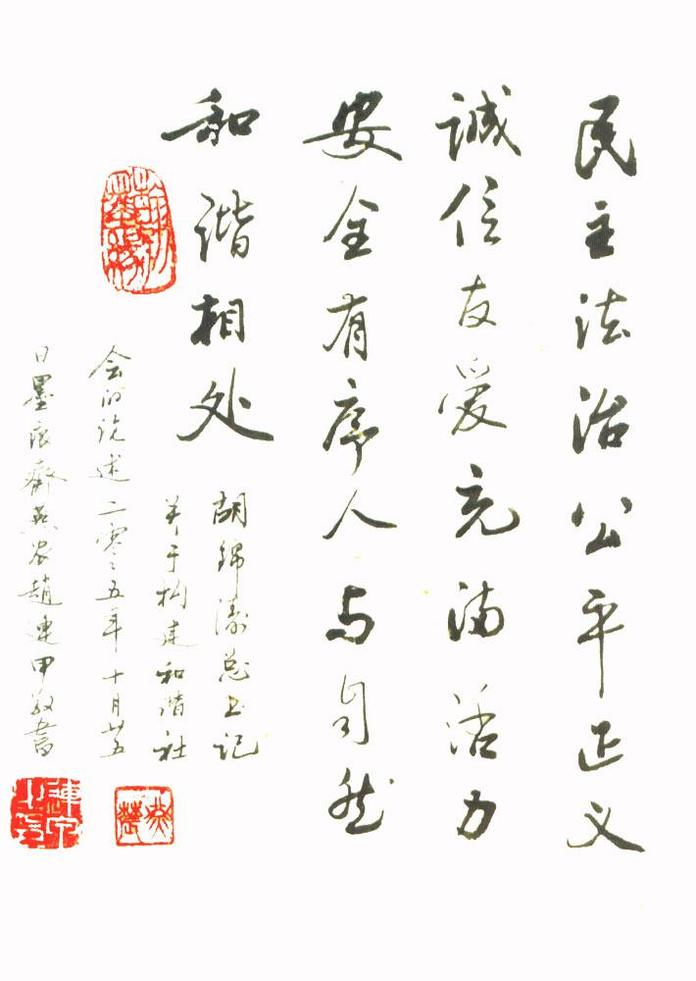 民主法治公平正义
诚信友爱充满活力
安全有序人与自然
和谐相处
胡锦涛总书记
关于构建和谐社
会的论述二零々五年十月廿五
日墨痕齋燕农趙連甲敬書